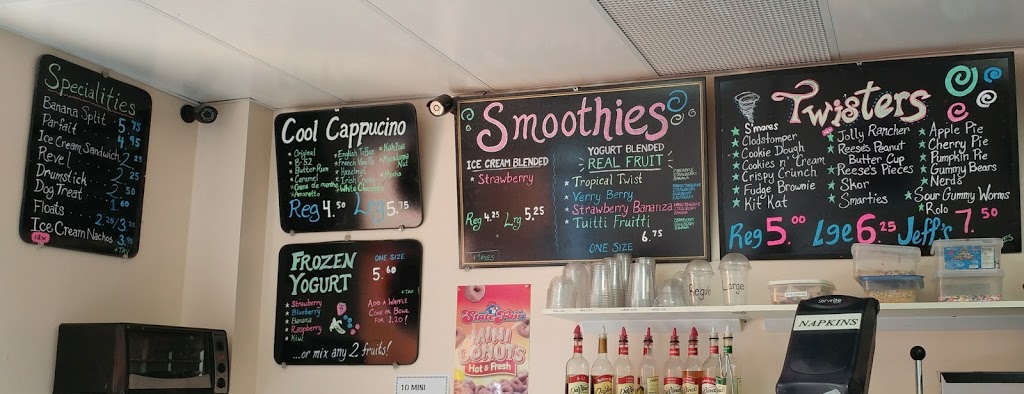 Specialities
Banana Split 5.75
Parfait 4.95
Ice Cream Sandwich 2.25
Revel 2
Drumstick 2.50
Dog Treat 1.60
Floats 2.25/3.25
Ice Cream Nachos 3.95
NEW
Cool Cappucino
Original
B-52
Butter Rum
Caramel
Creme de menthe
Amaretto
English Toffee
French Vanilla
Hazelnut
Irish Cream
White Chocolate
Kahlua
Macadamia
Nut
Mocha
Reg 4.50 Lrg 5.75
FROZEN
YOGURT
ONE SIZE
5.60
+ TAX
Strawberry
Blueberry
Banana
Raspberry
Kiwi
ADD A WAFFLE
CONE OR BOWL
FOR 1.20!
...or mix any 2 fruits!
Smoothies
ICE CREAM BLENDED
Strawberry
Reg 4.25 Lrg 5.25
+TAXES
YOGURT BLENDED
REAL FRUIT
Tropical Twist
Verry Berry
Strawberry Bananza
Tuitti Fruitti
6.75
ONE SIZE
Twisters
S'mores
Clodstomper
Cookie Dough
Cookies n' Cream
Crispy Crunch
Fudge Brownie
Kit Kat
Jolly Rancher
Reese's Peanut
Butter Cup
Reese's Pieces
Skor
Smarties
Apple Pie
Cherry Pie
Pumpkin Pie
Gummy Bears
Nerds
Sour Gummy Worms
Rolo
Reg 5.00 Lge 6.25 Jeff's 7.50
State Fair
MINI
DONUTS
Hot & Fresh
10 MINI
Regular
Large
servrite
NAPKINS